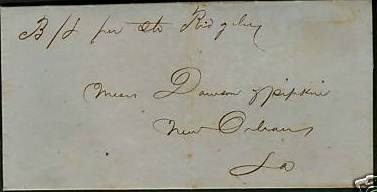 B/L per Str Ridgely
Messrs Dawson & Pipkin
New Orleans
La